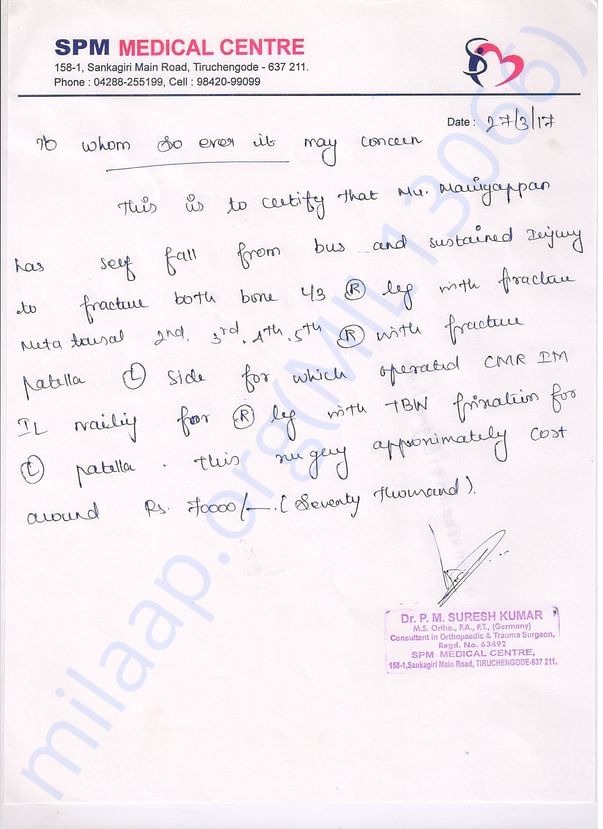 SPM MEDICAL CENTRE
158-1, Sankagiri Main Road, Tiruchengode - 637 211.
Phone : 04288-255199, Cell : 98420-99099
Date : 27/3/17
To whom so ever it may concern
This is to certify that Mr. Maniyappan
has self fall from bus and sustained Injury
to fracture both bone 1/3 (R) leg with fracture
Meta tarsal 2nd. 3rd. 4th. 5th (R) with fracture
patella (L) side for which operated CMR IM
IL nailing for (R) leg with TBW fixination for
(L) patella. This surgery approximately cost
around Rs. 70000/-. (Seventy thousand).
Dr. P. M. SURESH KUMAR
M.S. Ortho., F.A., F.T., (Germany)
Consultant in Orthopaedic & Trauma Surgeon,
Regd. No. 63492
SPM MEDICAL CENTRE,
158-1,Sankagiri Main Road, TIRUCHENGODE-637 211.
milaap.org(MIL 13066)